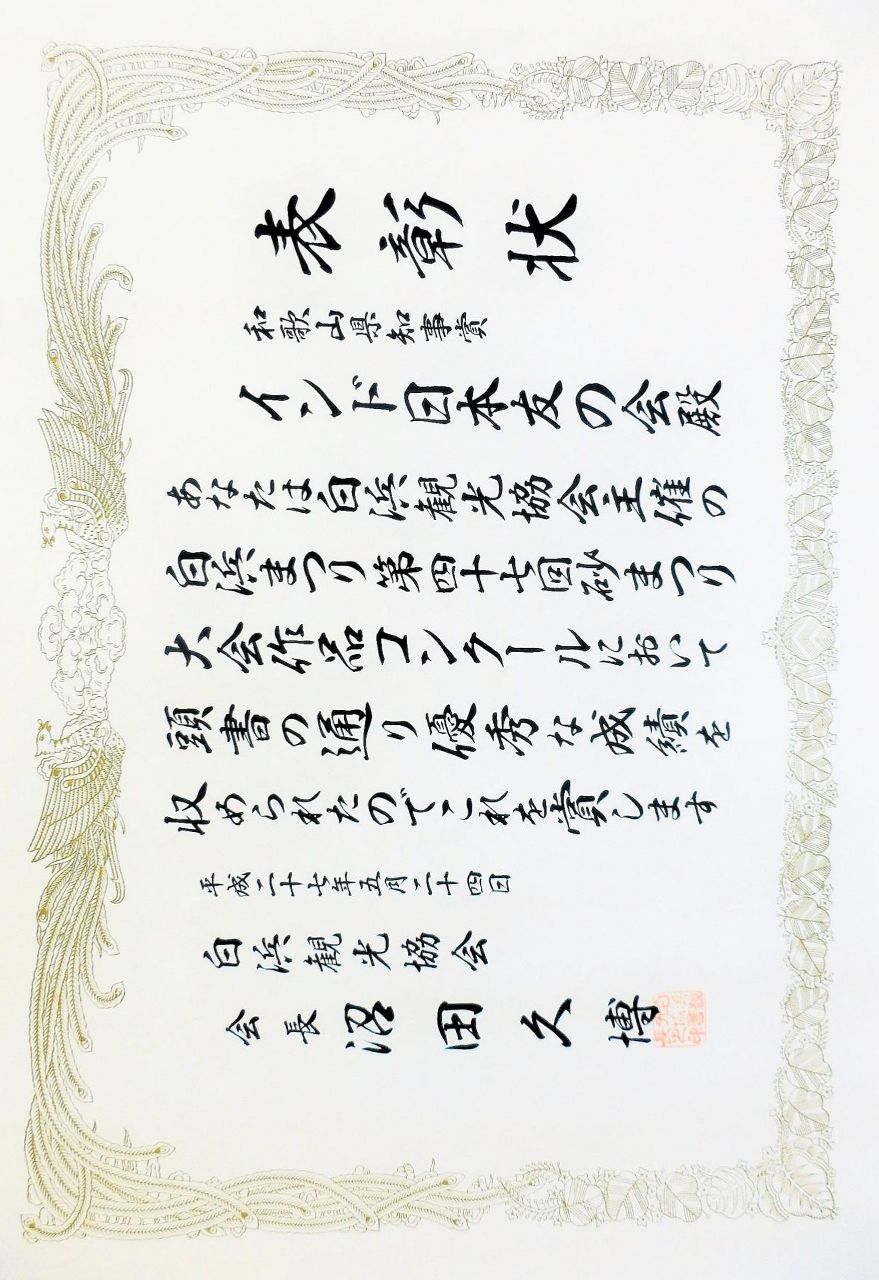 表彰状
和歌山県知事賞
インド日本友の会殿
あなたは白浜観光協会主催の
白浜まつり第四十七回砂まつり
大会作品コンクールにおいて
頭書の通り優秀な成績を
収められたのでこれを賞します
平成二十七年五月二十四日
白浜観光協会
会長 沼田久博